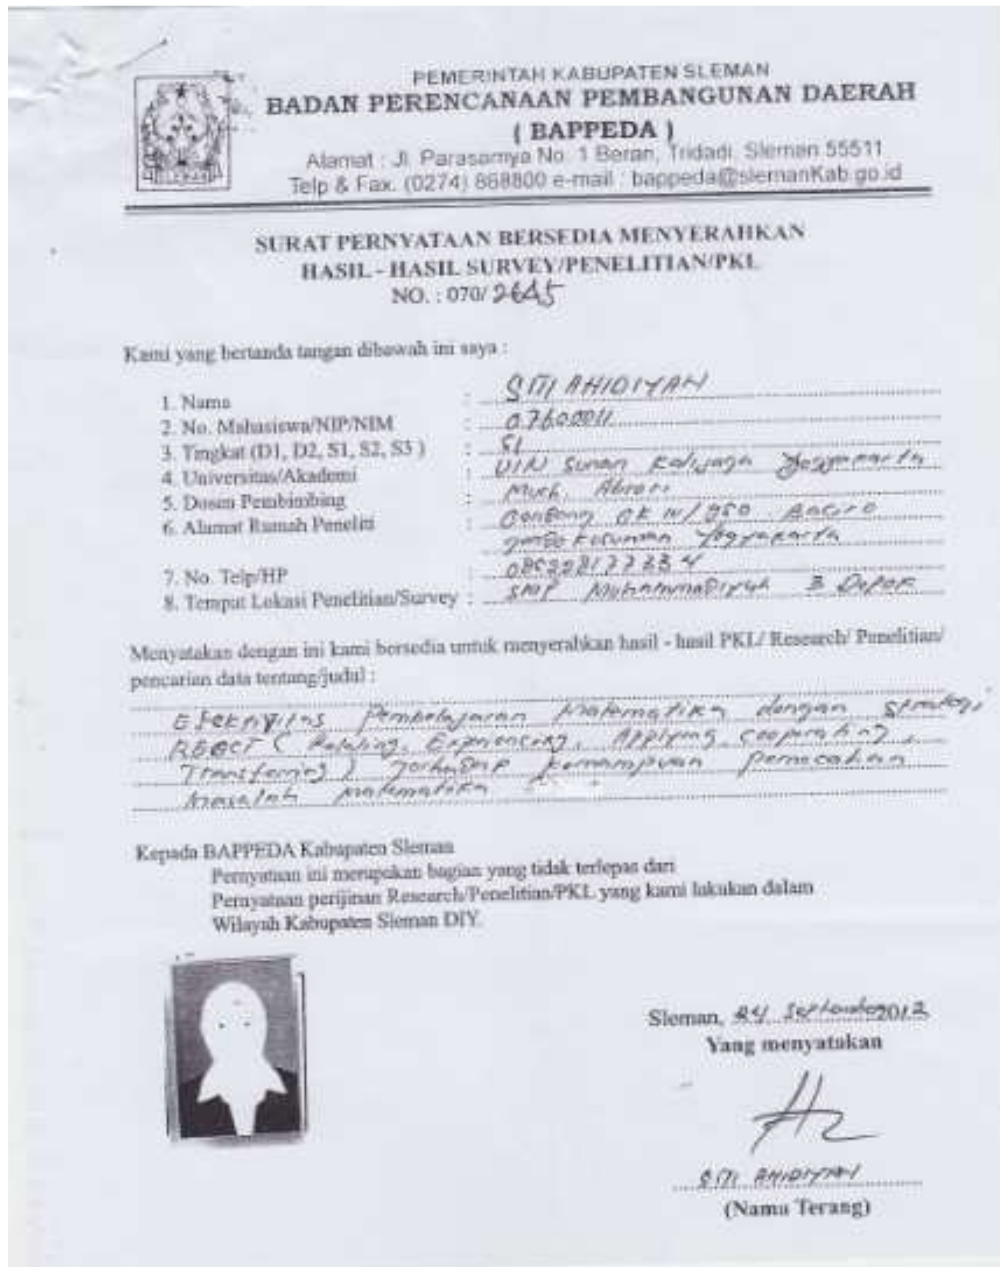 PEMERINTAH KABUPATEN SLEMAN
BADAN PERENCANAAN PEMBANGUNAN DAERAH
( BAPPEDA )
Alamat : Jl. Parasamya No. 1 Beran, Tridadi, Sleman 55511
Telp & Fax. (0274) 868800 e-mail : bappeda@slemanKab.go.id
SLEMAN
SURAT PERNYATAAN BERSEDIA MENYERAHKAN
HASIL - HASIL SURVEY/PENELITIAN/PKL
NO. : 070/ 2645
Kami yang bertanda tangan dibawah ini saya :
1. Nama : SITI AHIDIYAH
2. No. Mahasiswa/NIP/NIM : 07600011
3. Tingkat (D1, D2, S1, S2, S3 ) : S1
4. Universitas/Akademi : UIN Sunan Kalijaga Yogyakarta
5. Dosen Pembimbing : Much. Abrori
6. Alamat Rumah Peneliti : GK IV/ Baciro
Yogyakarta
7. No. Telp/HP :
8. Tempat Lokasi Penelitian/Survey : SMP Muhammadiyah 3 Depok
Menyatakan dengan ini kami bersedia untuk menyerahkan hasil - hasil PKL/ Research/ Penelitian/
pencarian data tentang/judul :
Efektivitas Pembelajaran Matematika dengan Strategi
REACT ( Relating, Experiencing, Applying, Cooperating,
Transferring ) Terhadap Kemampuan Pemecahan
Masalah Matematika
Kepada BAPPEDA Kabupaten Sleman
Pernyataan ini merupakan bagian yang tidak terlepas dari
Pernyataan perijinan Research/Penelitian/PKL yang kami lakukan dalam
Wilayah Kabupaten Sleman DIY.
Sleman, 24 September 2012
Yang menyatakan
SITI AHIDIYAH
(Nama Terang)